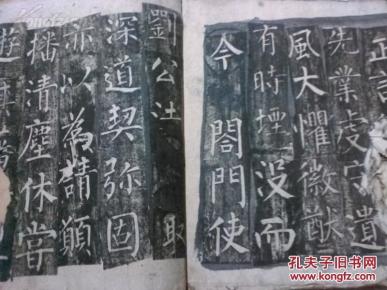 正言
先業虔守遺
風大懼徽猷
有時堙没而
今閤門使
劉公
深道契弥固
亦以為請願
播清塵休嘗
孔夫子旧书网
www.kongfz.com